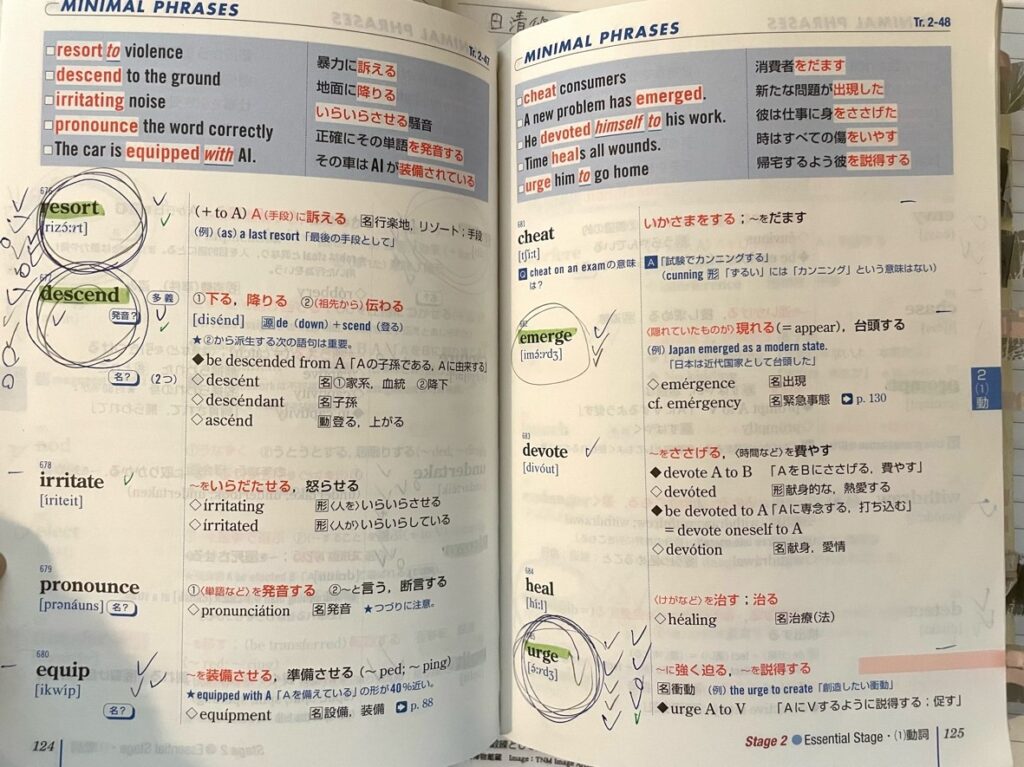 MINIMAL PHRASES
Tr. 2-47
□resort to violence
□descend to the ground
□irritating noise
□pronounce the word correctly
□The car is equipped with AI.
暴力に訴える
地面に降りる
いらいらさせる騒音
正確にその単語を発音する
その車はAIが装備されている
676
resort
[rizɔ́ːrt]
(+ to A) A〈手段〉に訴える 名行楽地，リゾート；手段
(例) (as) a last resort「最後の手段として」
677
descend
多義
発音?
名?
(2つ)
①下る，降りる ②〈祖先から〉伝わる
[disénd] 源de (down) + scend (登る)
★②から派生する次の語句は重要。
◆be descended from A「Aの子孫である，Aに由来する」
◇descént 名①家系，血統 ②降下
◇descéndant 名子孫
◇ascénd 動登る，上がる
678
irritate
[íriteit]
～をいらだたせる，怒らせる
◇írritating 形〈人を〉いらいらさせる
◇írritated 形〈人が〉いらいらしている
679
pronounce
[prənáuns]
名?
①〈単語など〉を発音する ②～と言う，断言する
◇pronunciátion 名発音 ★つづりに注意。
680
equip
[ikwíp]
名?
～を装備させる，準備させる (～ped; ～ping)
★equipped with A「Aを備えている」の形が40％近い。
◇equípment 名設備，装備 p. 88
124
Stage 2 ●Essential Stage・⑴動詞
MINIMAL PHRASES
Tr. 2-48
□cheat consumers
□A new problem has emerged.
□He devoted himself to his work.
□Time heals all wounds.
□urge him to go home
消費者をだます
新たな問題が出現した
彼は仕事に身をささげた
時はすべての傷をいやす
帰宅するよう彼を説得する
681
cheat
[tʃíːt]
Q cheat on an examの意味は？
いかさまをする；～をだます
A「試験でカンニングする」
(cunning 形「ずるい」には「カンニング」という意味はない)
emerge
[imə́ːrdʒ]
〈隠れていたものが〉現れる(= appear)，台頭する
(例) Japan emerged as a modern state.
「日本は近代国家として台頭した」
◇emérgence 名出現
cf. emérgency 名緊急事態 p. 130
2
⑴
動
683
devote
[divóut]
～をささげる，〈時間など〉を費やす
◆devote A to B「AをBにささげる，費やす」
◇devóted 形献身的な，熱愛する
◆be devoted to A「Aに専念する，打ち込む」
= devote oneself to A
◇devótion 名献身，愛情
684
heal
[híːl]
〈けがなど〉を治す；治る
◇héaling 名治療(法)
urge
[ə́ːrdʒ]
～に強く迫る，～を説得する
名衝動 (例) the urge to create「創造したい衝動」
◆urge A to V「AにVするように説得する；促す」
Stage 2 ●Essential Stage・⑴動詞 125